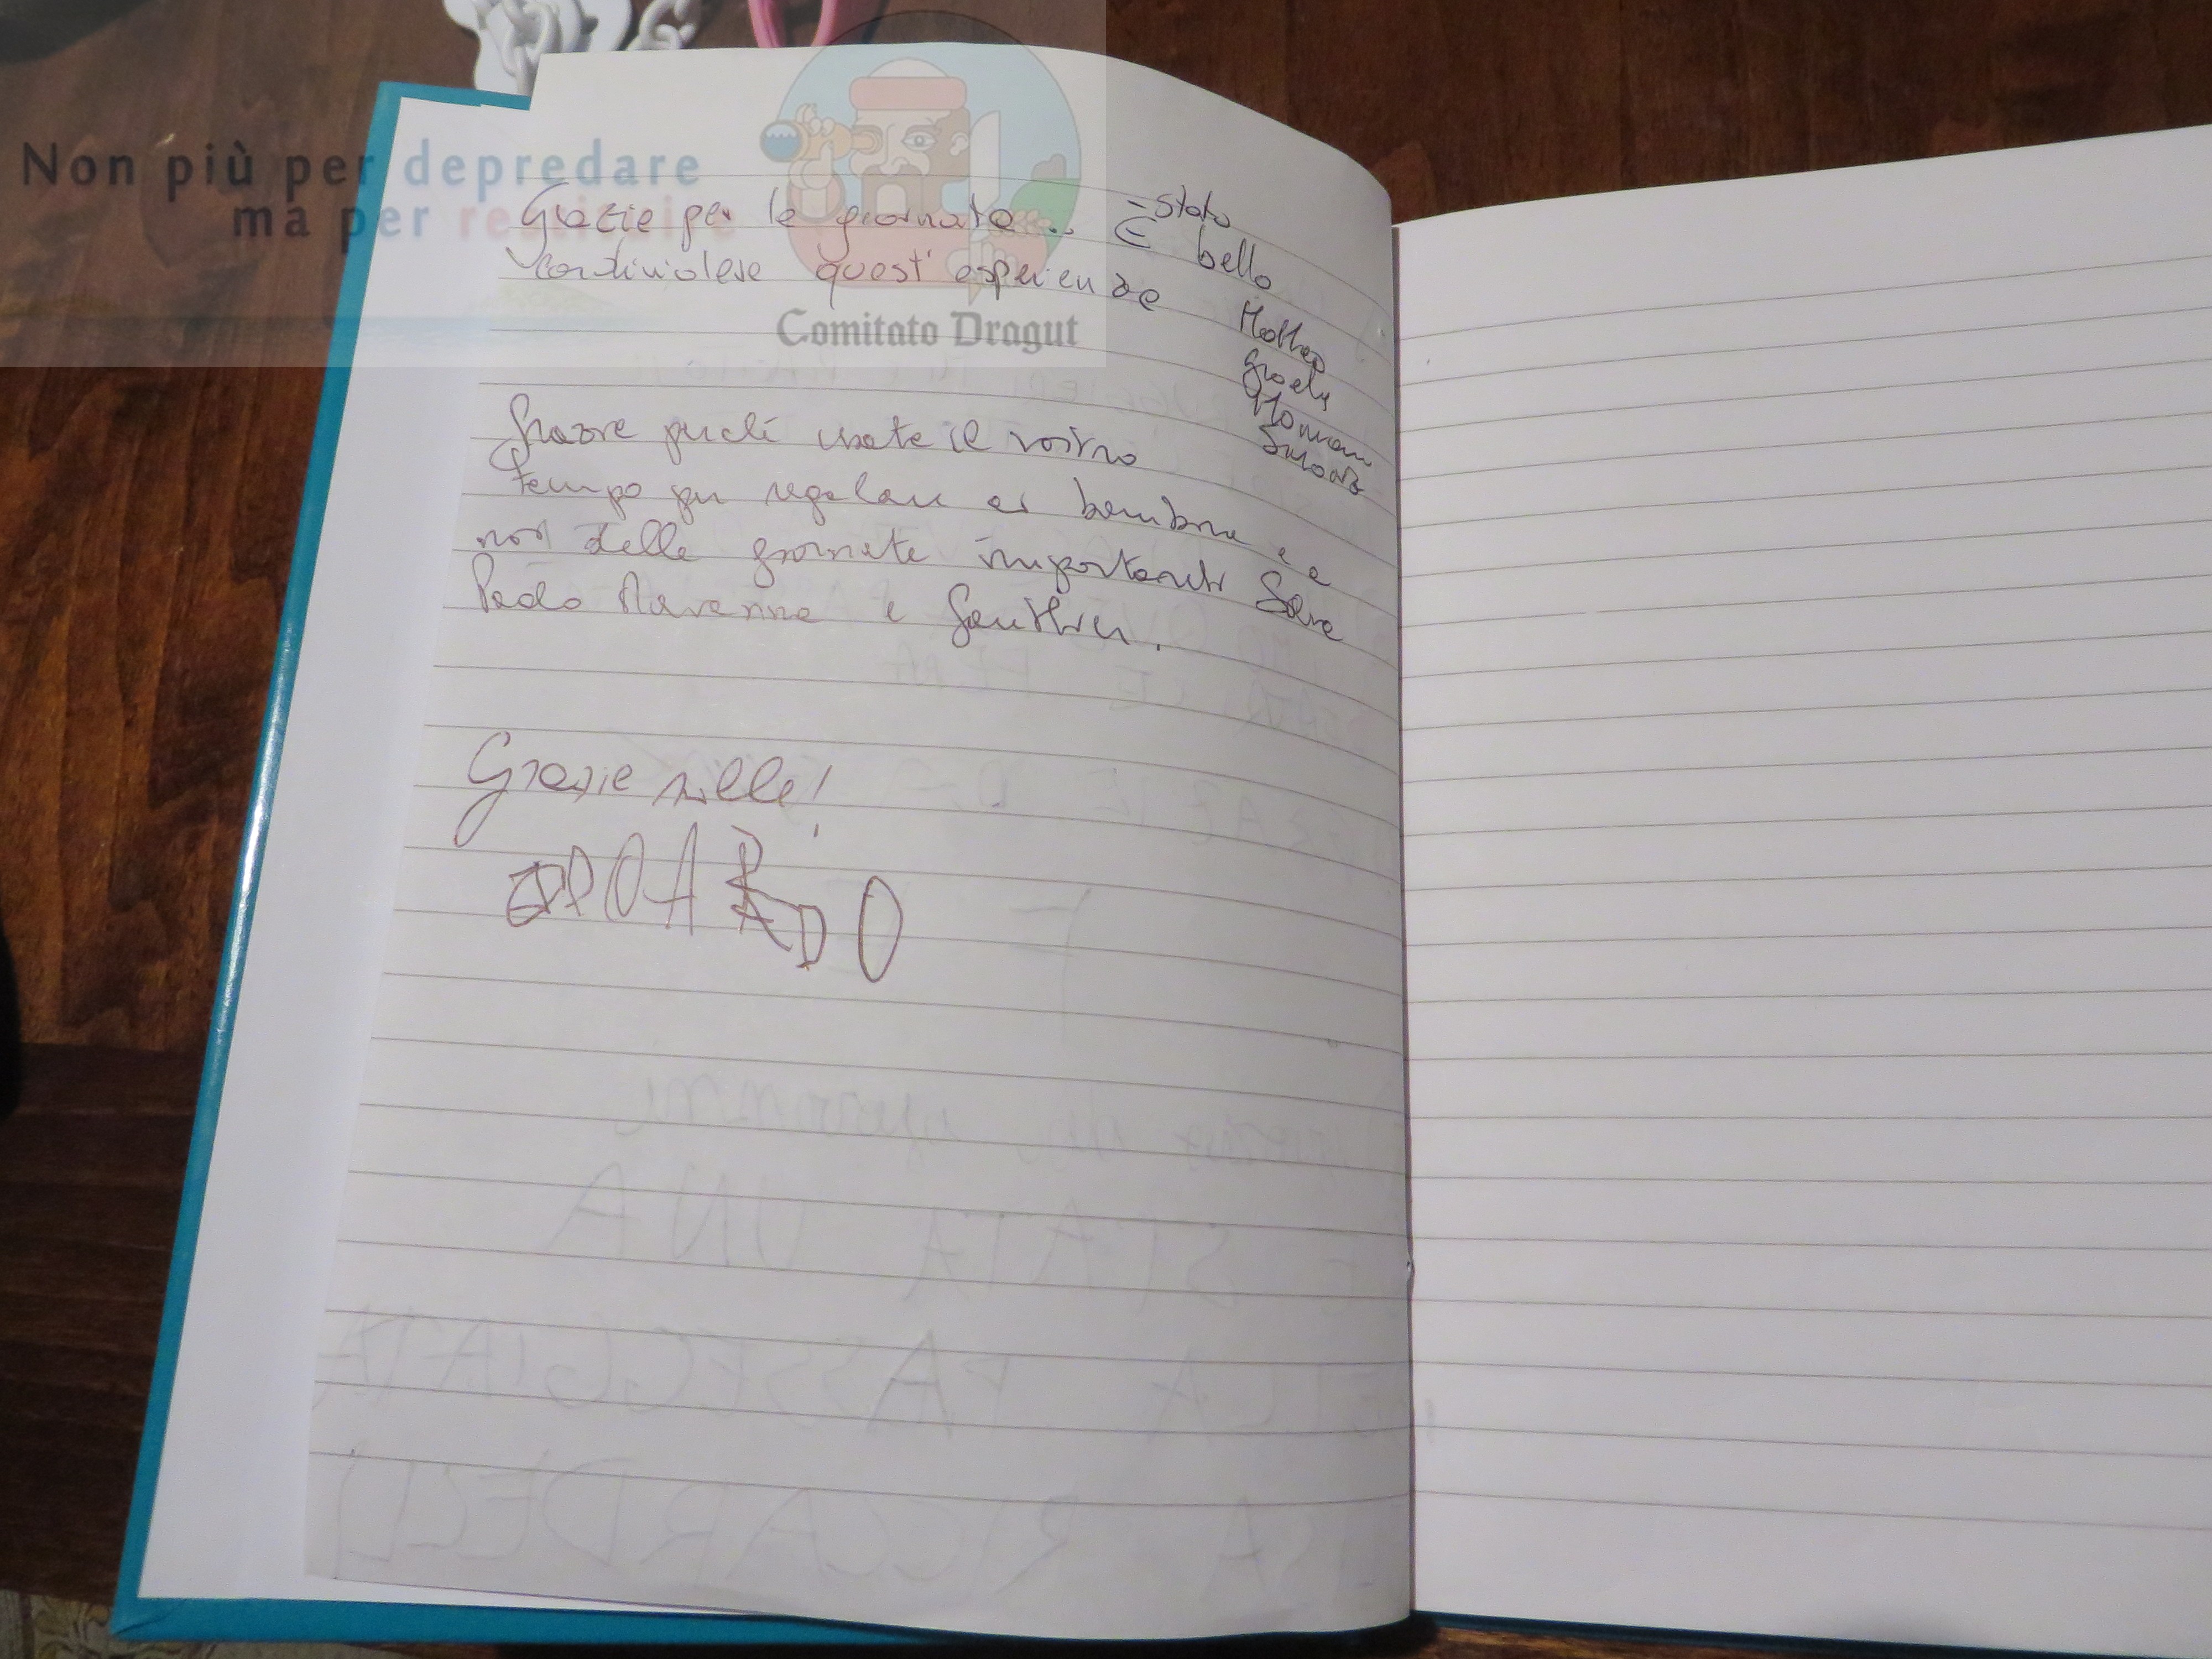 Non più per depredare
ma per restituire
Comitato Dragut
Grazie per la giornata... È stato bello
condividere quest'esperienza
Matteo
Giada
Simone
Grazie perché usate il vostro
tempo per regalare ai bambini e a
noi delle giornate importanti Sara
Paolo Marianna e
Grazie mille!
EDOARDO